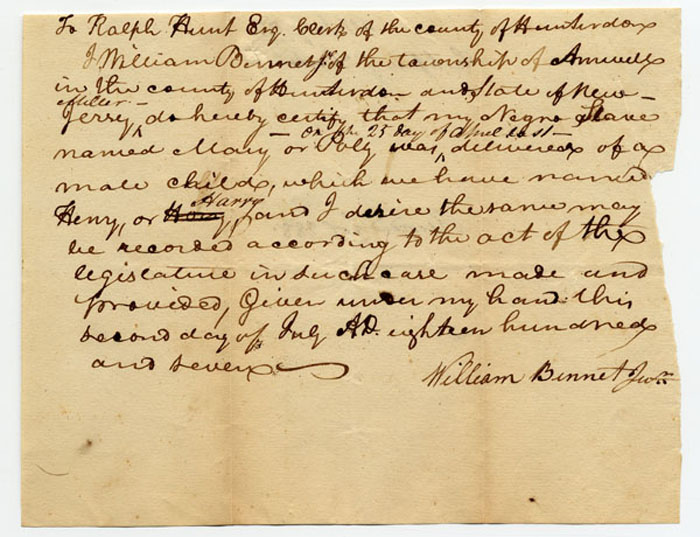 To Ralph Hunt Esq. Clerk of the county of Hunterdon
I William Bennet Jr. of the township of Amwell
in the county of Hunterdon and State of New-
Miller.-
Jersey, do hereby certify that my Negro Slave
- on the 25 day of April last -
named Mary or Poly was, delivered of a
male child, which we have named
Harry
Henry, or Harry, and I desire the same may
be recorded according to the act of the
legislature in such case made and
provided, Given under my hand this
second day of July AD. eighteen hundred
and seven
William Bennet Junr.